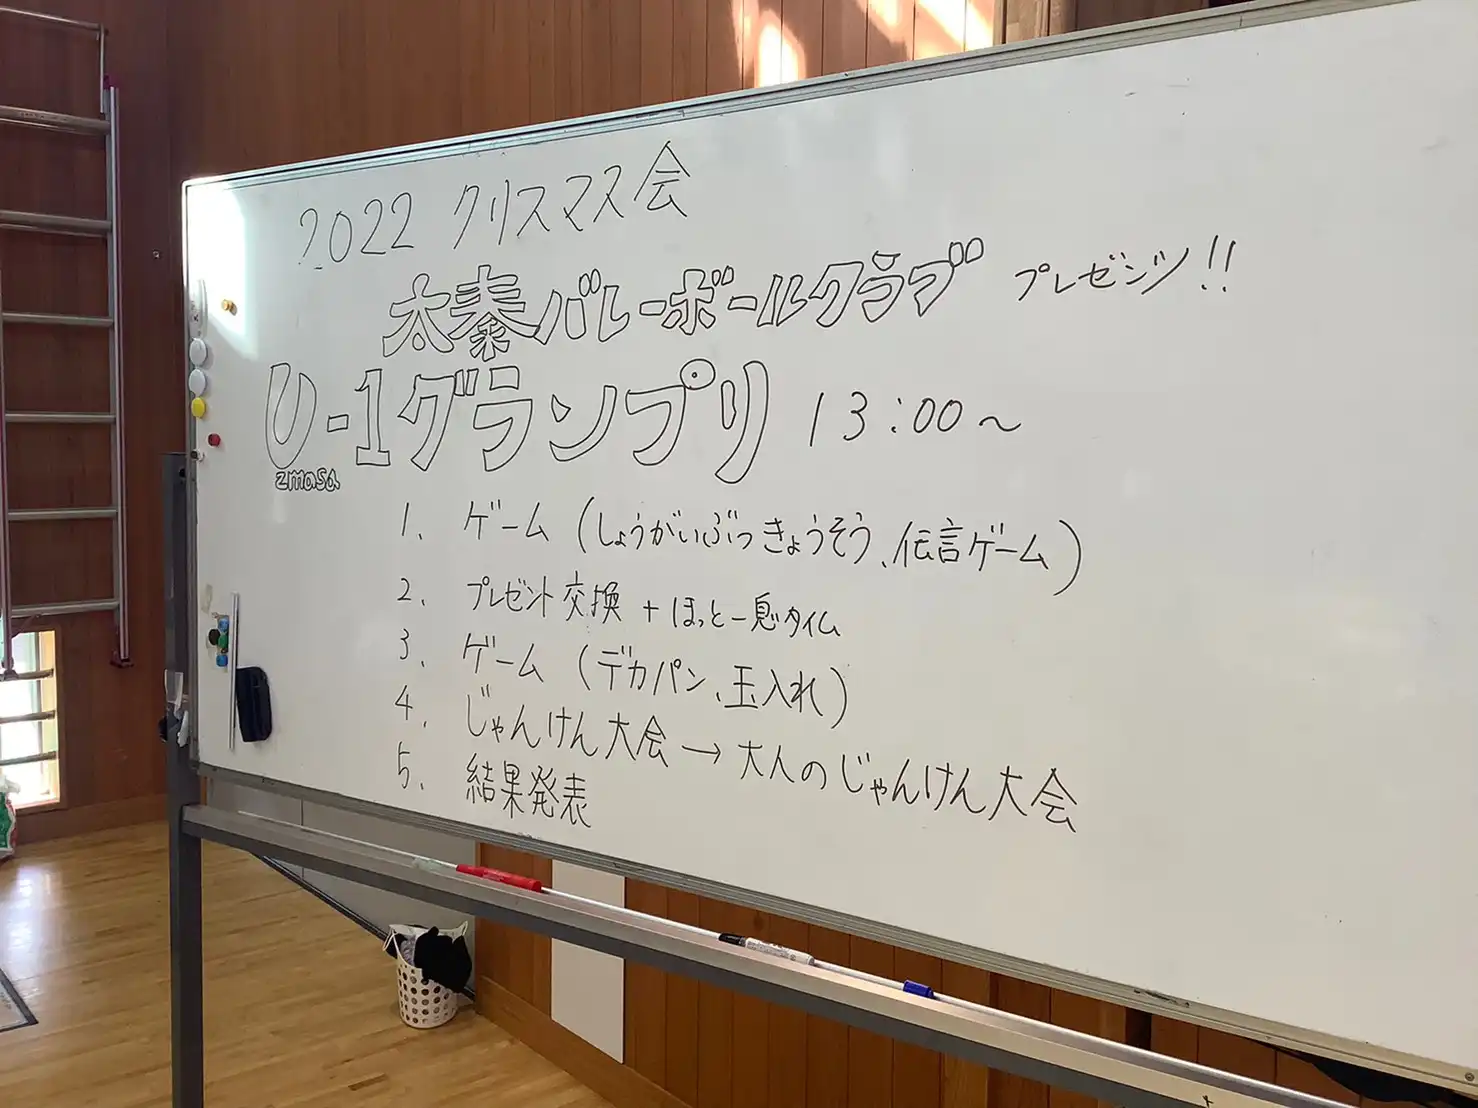 2022 クリスマス会
太秦バレーボールクラブ プレゼンツ!!
U-1グランプリ 13:00～
zmasa
1. ゲーム (しょうがいぶつきょうそう、伝言ゲーム)
2. プレゼント交換 + ほっと一息タイム
3. ゲーム (デカパン、玉入れ)
4. じゃんけん大会 → 大人のじゃんけん大会
5. 結果発表